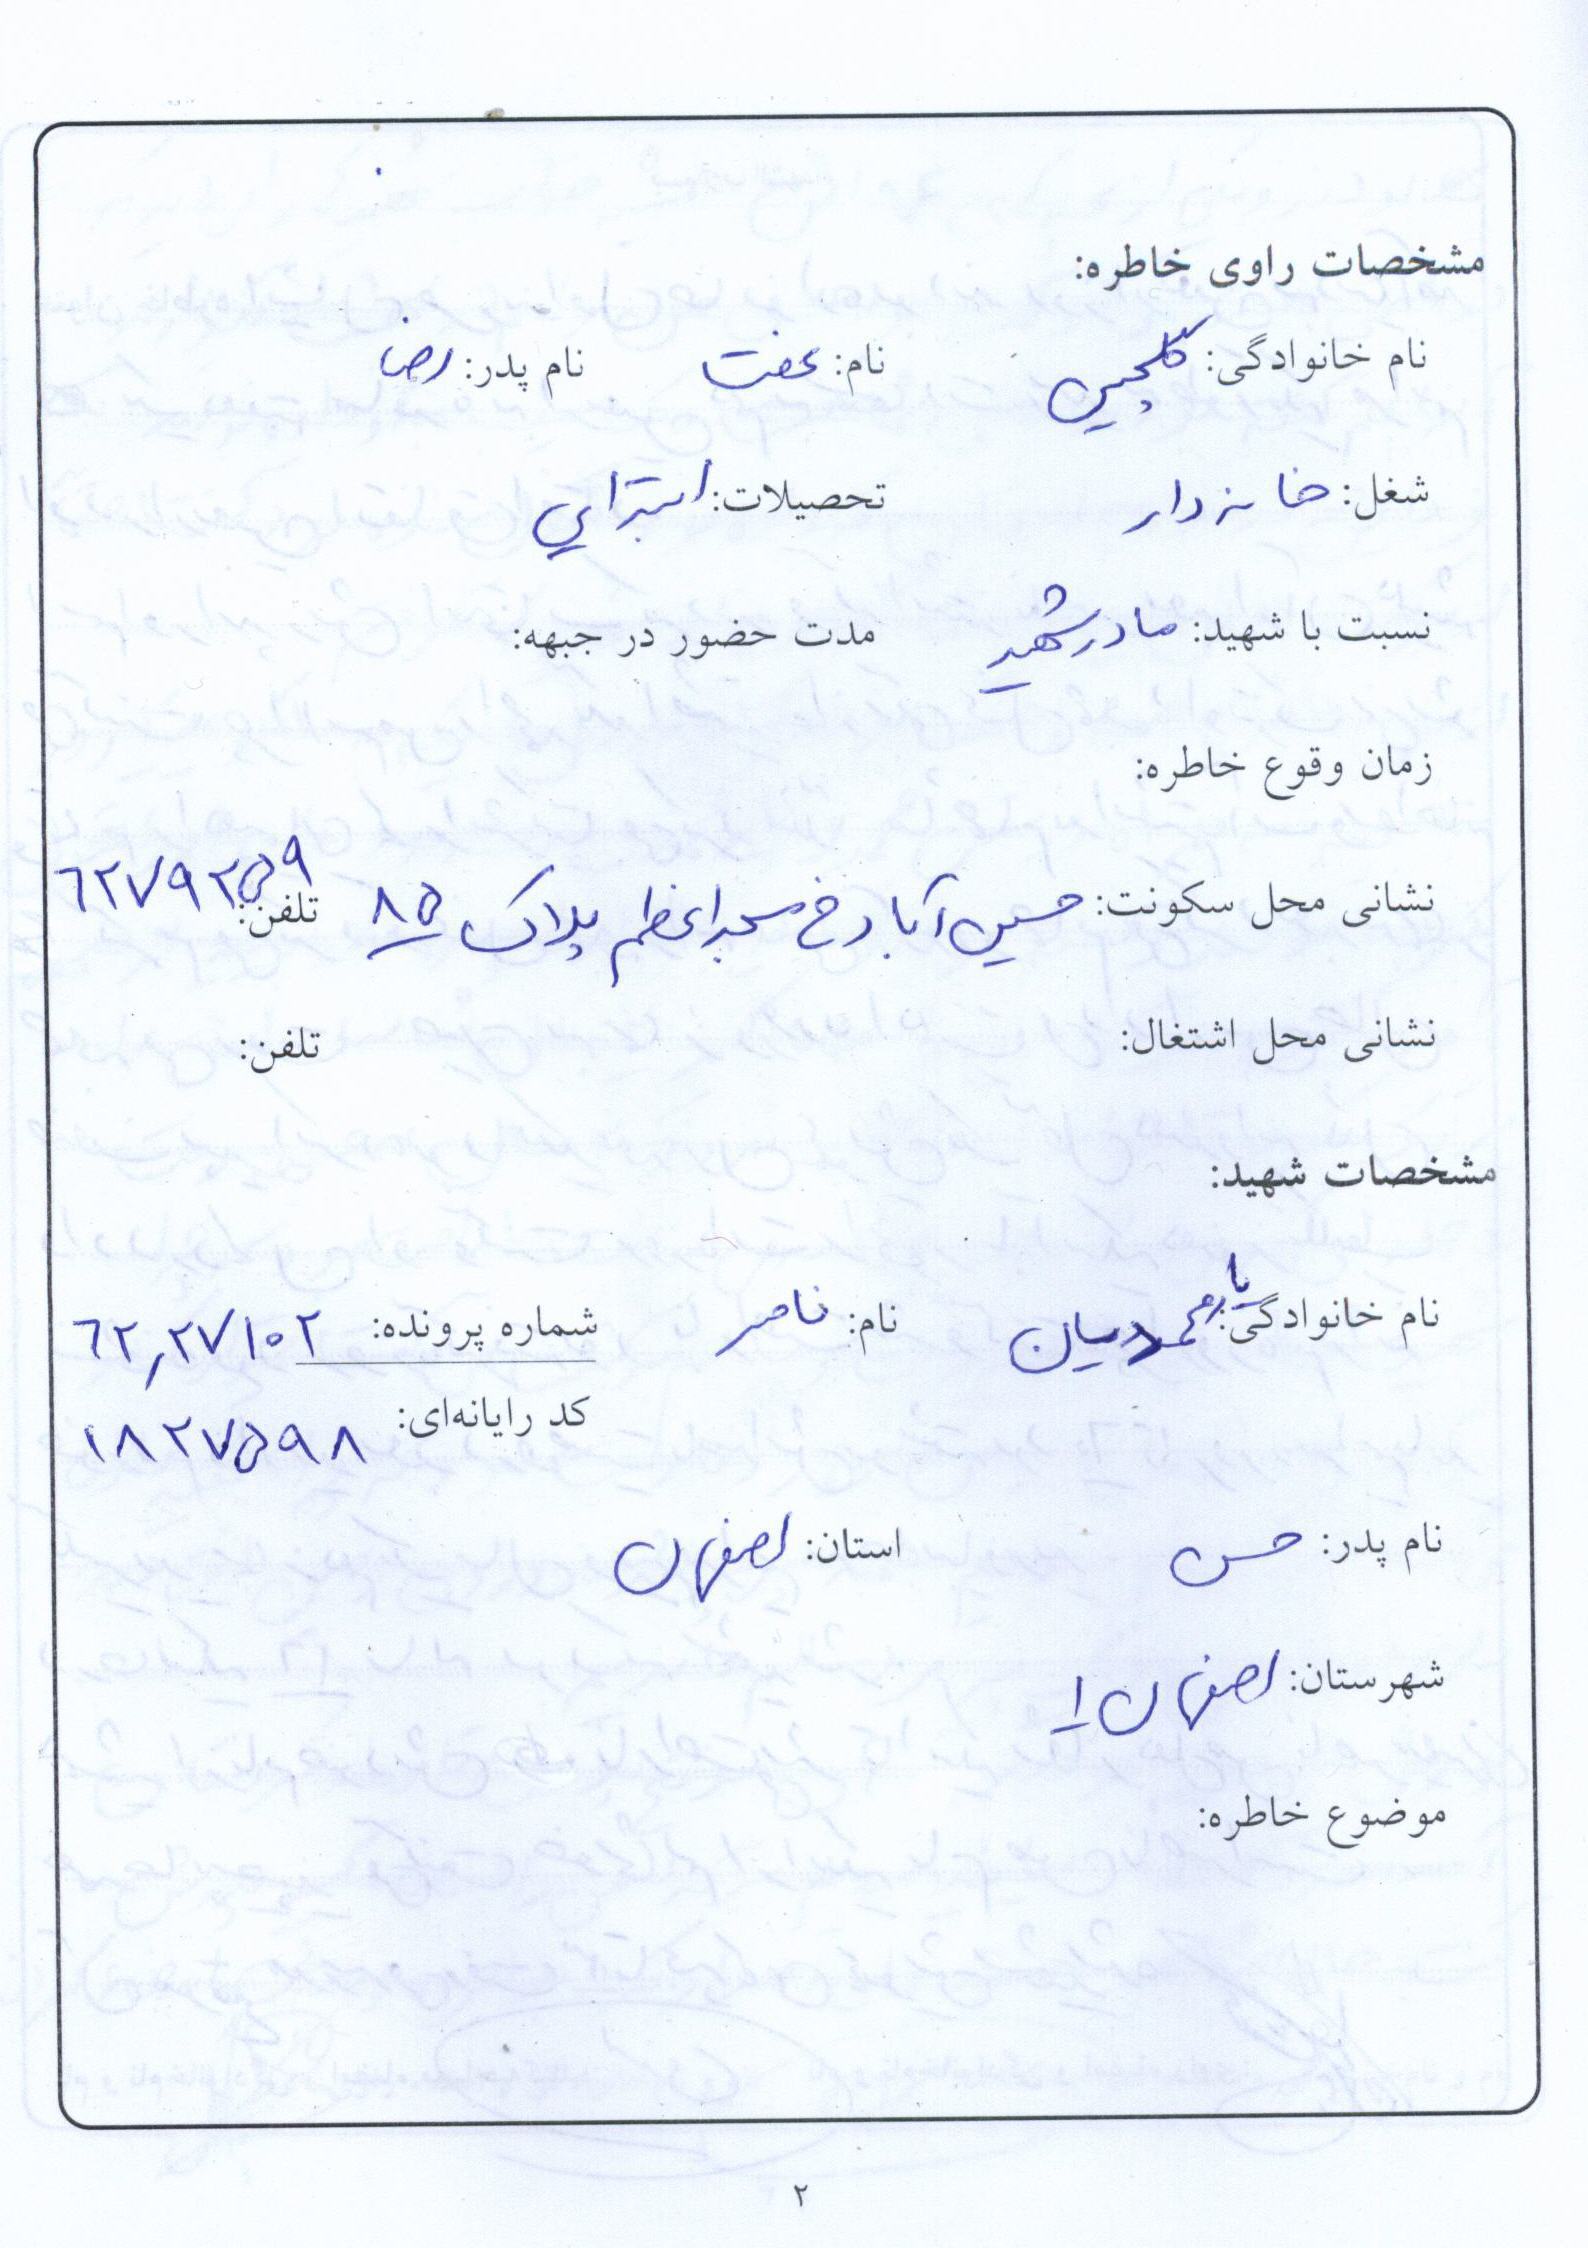 مشخصات راوی خاطره:
نام خانوادگی: گلچین نام: عفت نام پدر: رضا
شغل: خانه دار تحصیلات: ابتدایی
نسبت با شهید: مادر شهید مدت حضور در جبهه:
زمان وقوع خاطره:
نشانی محل سکونت: حسین آباد خ مسجد اعظم پلاک ۸۵ تلفن: ۶۲۷۹۲۵۹
نشانی محل اشتغال: تلفن:
مشخصات شهید:
نام خانوادگی: یارمحمدیان نام: ناصر شماره پرونده: ۶۲٫۲۷۱۰۲
کد رایانه‌ای: ۱۸۲۷۵۹۸
نام پدر: حسن استان: اصفهان
شهرستان: اصفهان ۱
موضوع خاطره:
۲